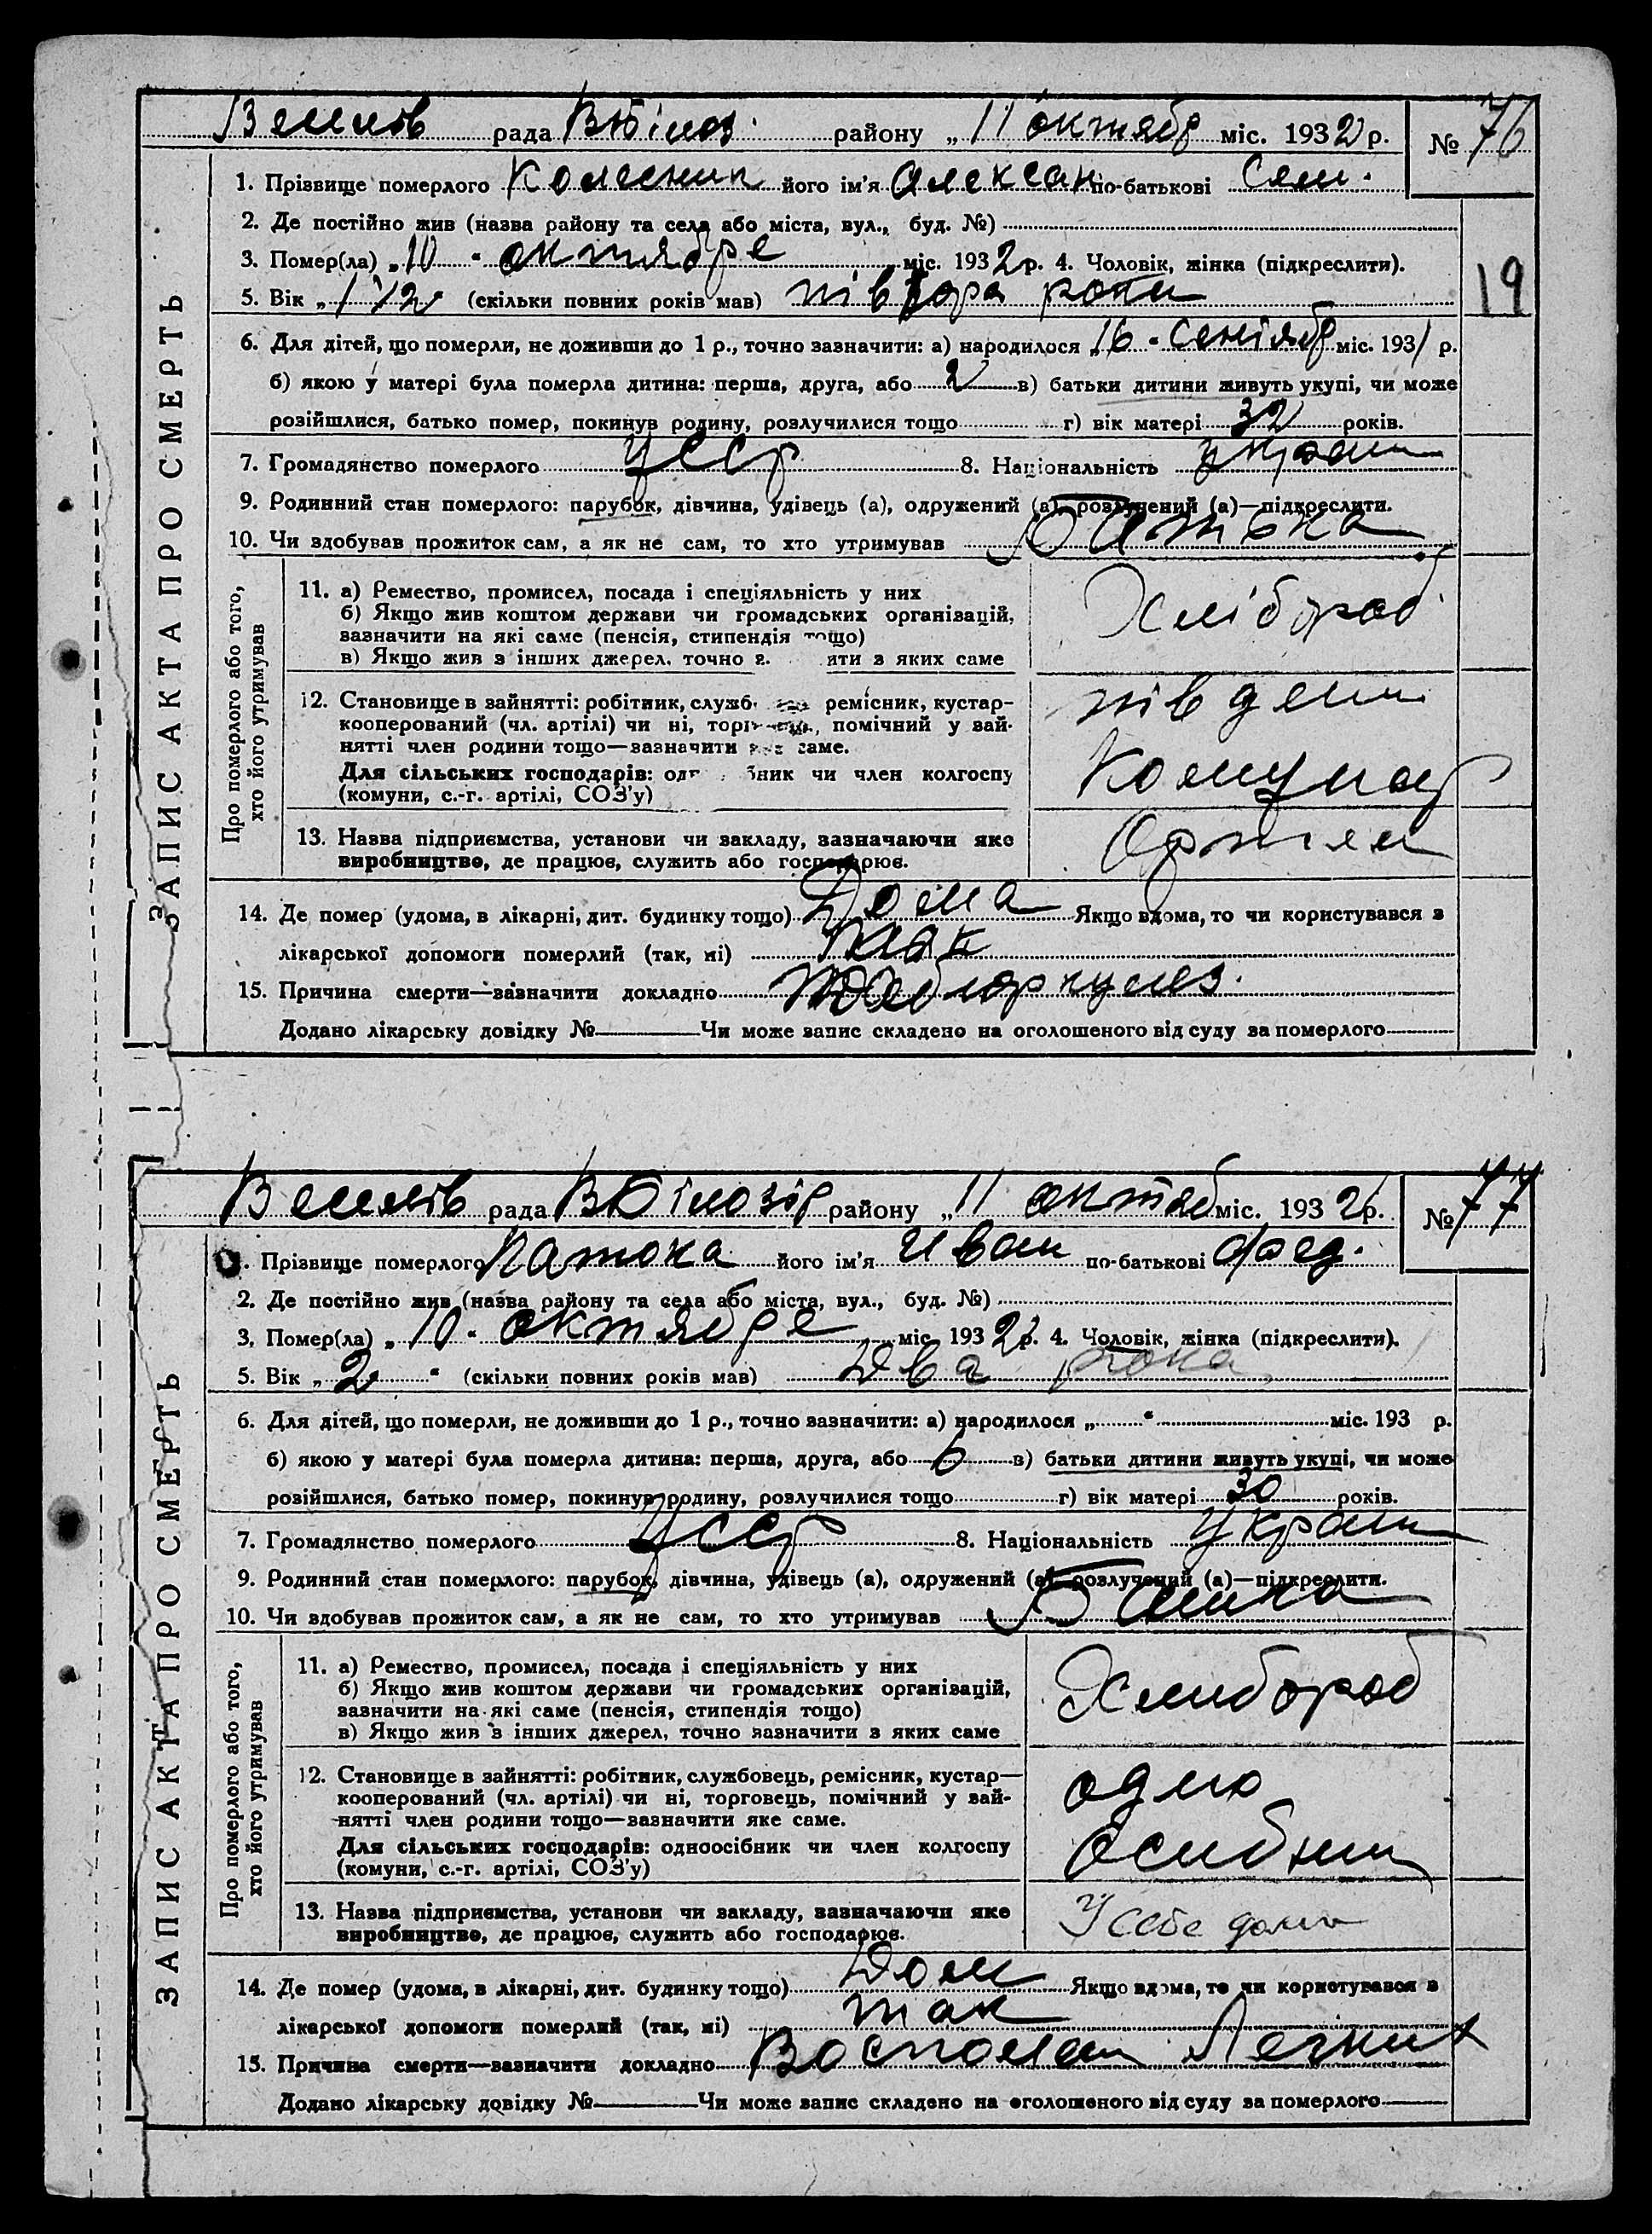 рада В Білоз. району „ 11 октябр міс. 1932 р. № 76
1. Прізвище померлого Колесник його ім'я Алексан по-батькові Сем.
2. Де постійно жив (назва району та села або міста, вул., буд. №)
3. Помер(ла) „ 10 " октябре міс. 1932 р. 4. Чоловік, жінка (підкреслити).
5. Вік „ 1 1/2 (скільки повних років мав) півтора роки
19
6. Для дітей, що померли, не доживши до 1 р., точно зазначити: а) народилося „ 16 " сентябр міс. 1931 р.
б) якою у матері була померла дитина: перша, друга, або 2 в) батьки дитини живуть укупі, чи може
розійшлися, батько помер, покинув родину, розлучилися тощо г) вік матері 32 років.
7. Громадянство померлого УССР 8. Національність Украин
9. Родинний стан померлого: парубок, дівчина, удівець (а), одружений (а), розлучений (а)—підкреслити.
10. Чи здобував прожиток сам, а як не сам, то хто утримував Батька
ЗАПИС АКТА ПРО СМЕРТЬ
Про померлого або того,
хто його утримував
11. а) Ремество, промисел, посада і спеціяльність у них
б) Якщо жив коштом держави чи громадських організацій,
зазначити на які саме (пенсія, стипендія тощо)
в) Якщо жив з інших джерел, точно з ити з яких саме
Хлібороб
12. Становище в зайнятті: робітник, служб ремісник, кустар-
кооперований (чл. артілі) чи ні, торг , помічний у зай-
нятті член родини тощо—зазначити яке саме.
Для сільських господарів: од бник чи член колгоспу
(комуни, с.-г. артілі, СОЗ'у)
Комунар
13. Назва підприємства, установи чи закладу, зазначаючи яке
виробництво, де працює, служить або господарює.
Артели
14. Де помер (удома, в лікарні, дит. будинку тощо) Дома Якщо вдома, то чи користувався з
лікарської допомоги померлий (так, ні) так
15. Причина смерти—зазначити докладно
Додано лікарську довідку № Чи може запис складено на оголошеного від суду за померлого
рада В Білозір району „ 11 октяб міс. 1932 р. № 77
1. Прізвище померлого Патока його ім'я Иван по-батькові Фед.
2. Де постійно жив (назва району та села або міста, вул., буд. №)
3. Помер(ла) „ 10 " октябре міс. 1932 р. 4. Чоловік, жінка (підкреслити).
5. Вік „ 2 " (скільки повних років мав) Два рока
6. Для дітей, що померли, не доживши до 1 р., точно зазначити: а) народилося „ " міс. 193 р.
б) якою у матері була померла дитина: перша, друга, або 6 в) батьки дитини живуть укупі, чи може
розійшлися, батько помер, покинув родину, розлучилися тощо г) вік матері 30 років.
7. Громадянство померлого УССР 8. Національність Украин
9. Родинний стан померлого: парубок, дівчина, удівець (а), одружений (а), розлучений (а)—підкреслити.
10. Чи здобував прожиток сам, а як не сам, то хто утримував
ЗАПИС АКТА ПРО СМЕРТЬ
Про померлого або того,
хто його утримував
11. а) Ремество, промисел, посада і спеціяльність у них
б) Якщо жив коштом держави чи громадських організацій,
зазначити на які саме (пенсія, стипендія тощо)
в) Якщо жив з інших джерел, точно зазначити з яких саме
Хлибороб
12. Становище в зайнятті: робітник, службовець, ремісник, кустар—
кооперований (чл. артілі) чи ні, торговець, помічний у зай-
нятті член родини тощо—зазначити яке саме.
Для сільських господарів: одноосібник чи член колгоспу
(комуни, с.-г. артілі, СОЗ'у)
одно
осибник
13. Назва підприємства, установи чи закладу, зазначаючи яке
виробництво, де працює, служить або господарює.
У себе дома
14. Де помер (удома, в лікарні, дит. будинку тощо) Дом Якщо вдома, то чи користувався з
лікарської допомоги померлий (так, ні) так
15. Причина смерти—зазначити докладно Воспален Легких
Додано лікарську довідку № Чи може запис складено на оголошеного від суду за померлого